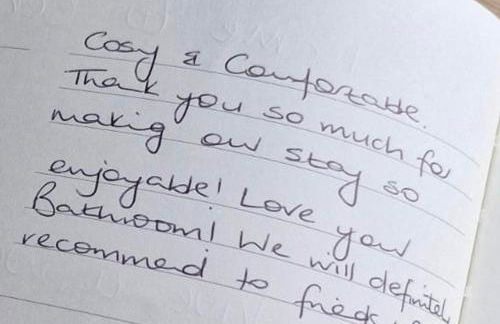 Cosy & Comfortable.
Thank you so much for
making our stay so
enjoyable! Love your
Bathroom! We will definitely
recommend to friends